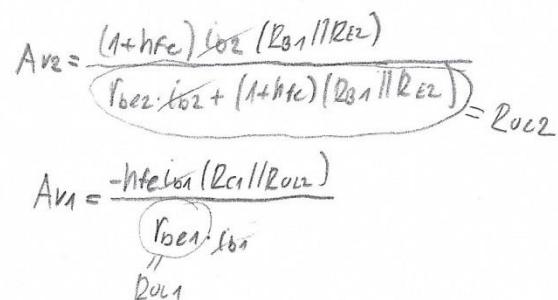 Av2 = (1+hfe) ib2 (RB1||RE2)
rbe2 · ib2 + (1+hfe)(RB1||RE2) = RUL2
Av1 = -hfe ib1 (RC1||RUL2)
rbe1 · ib1
RUL1